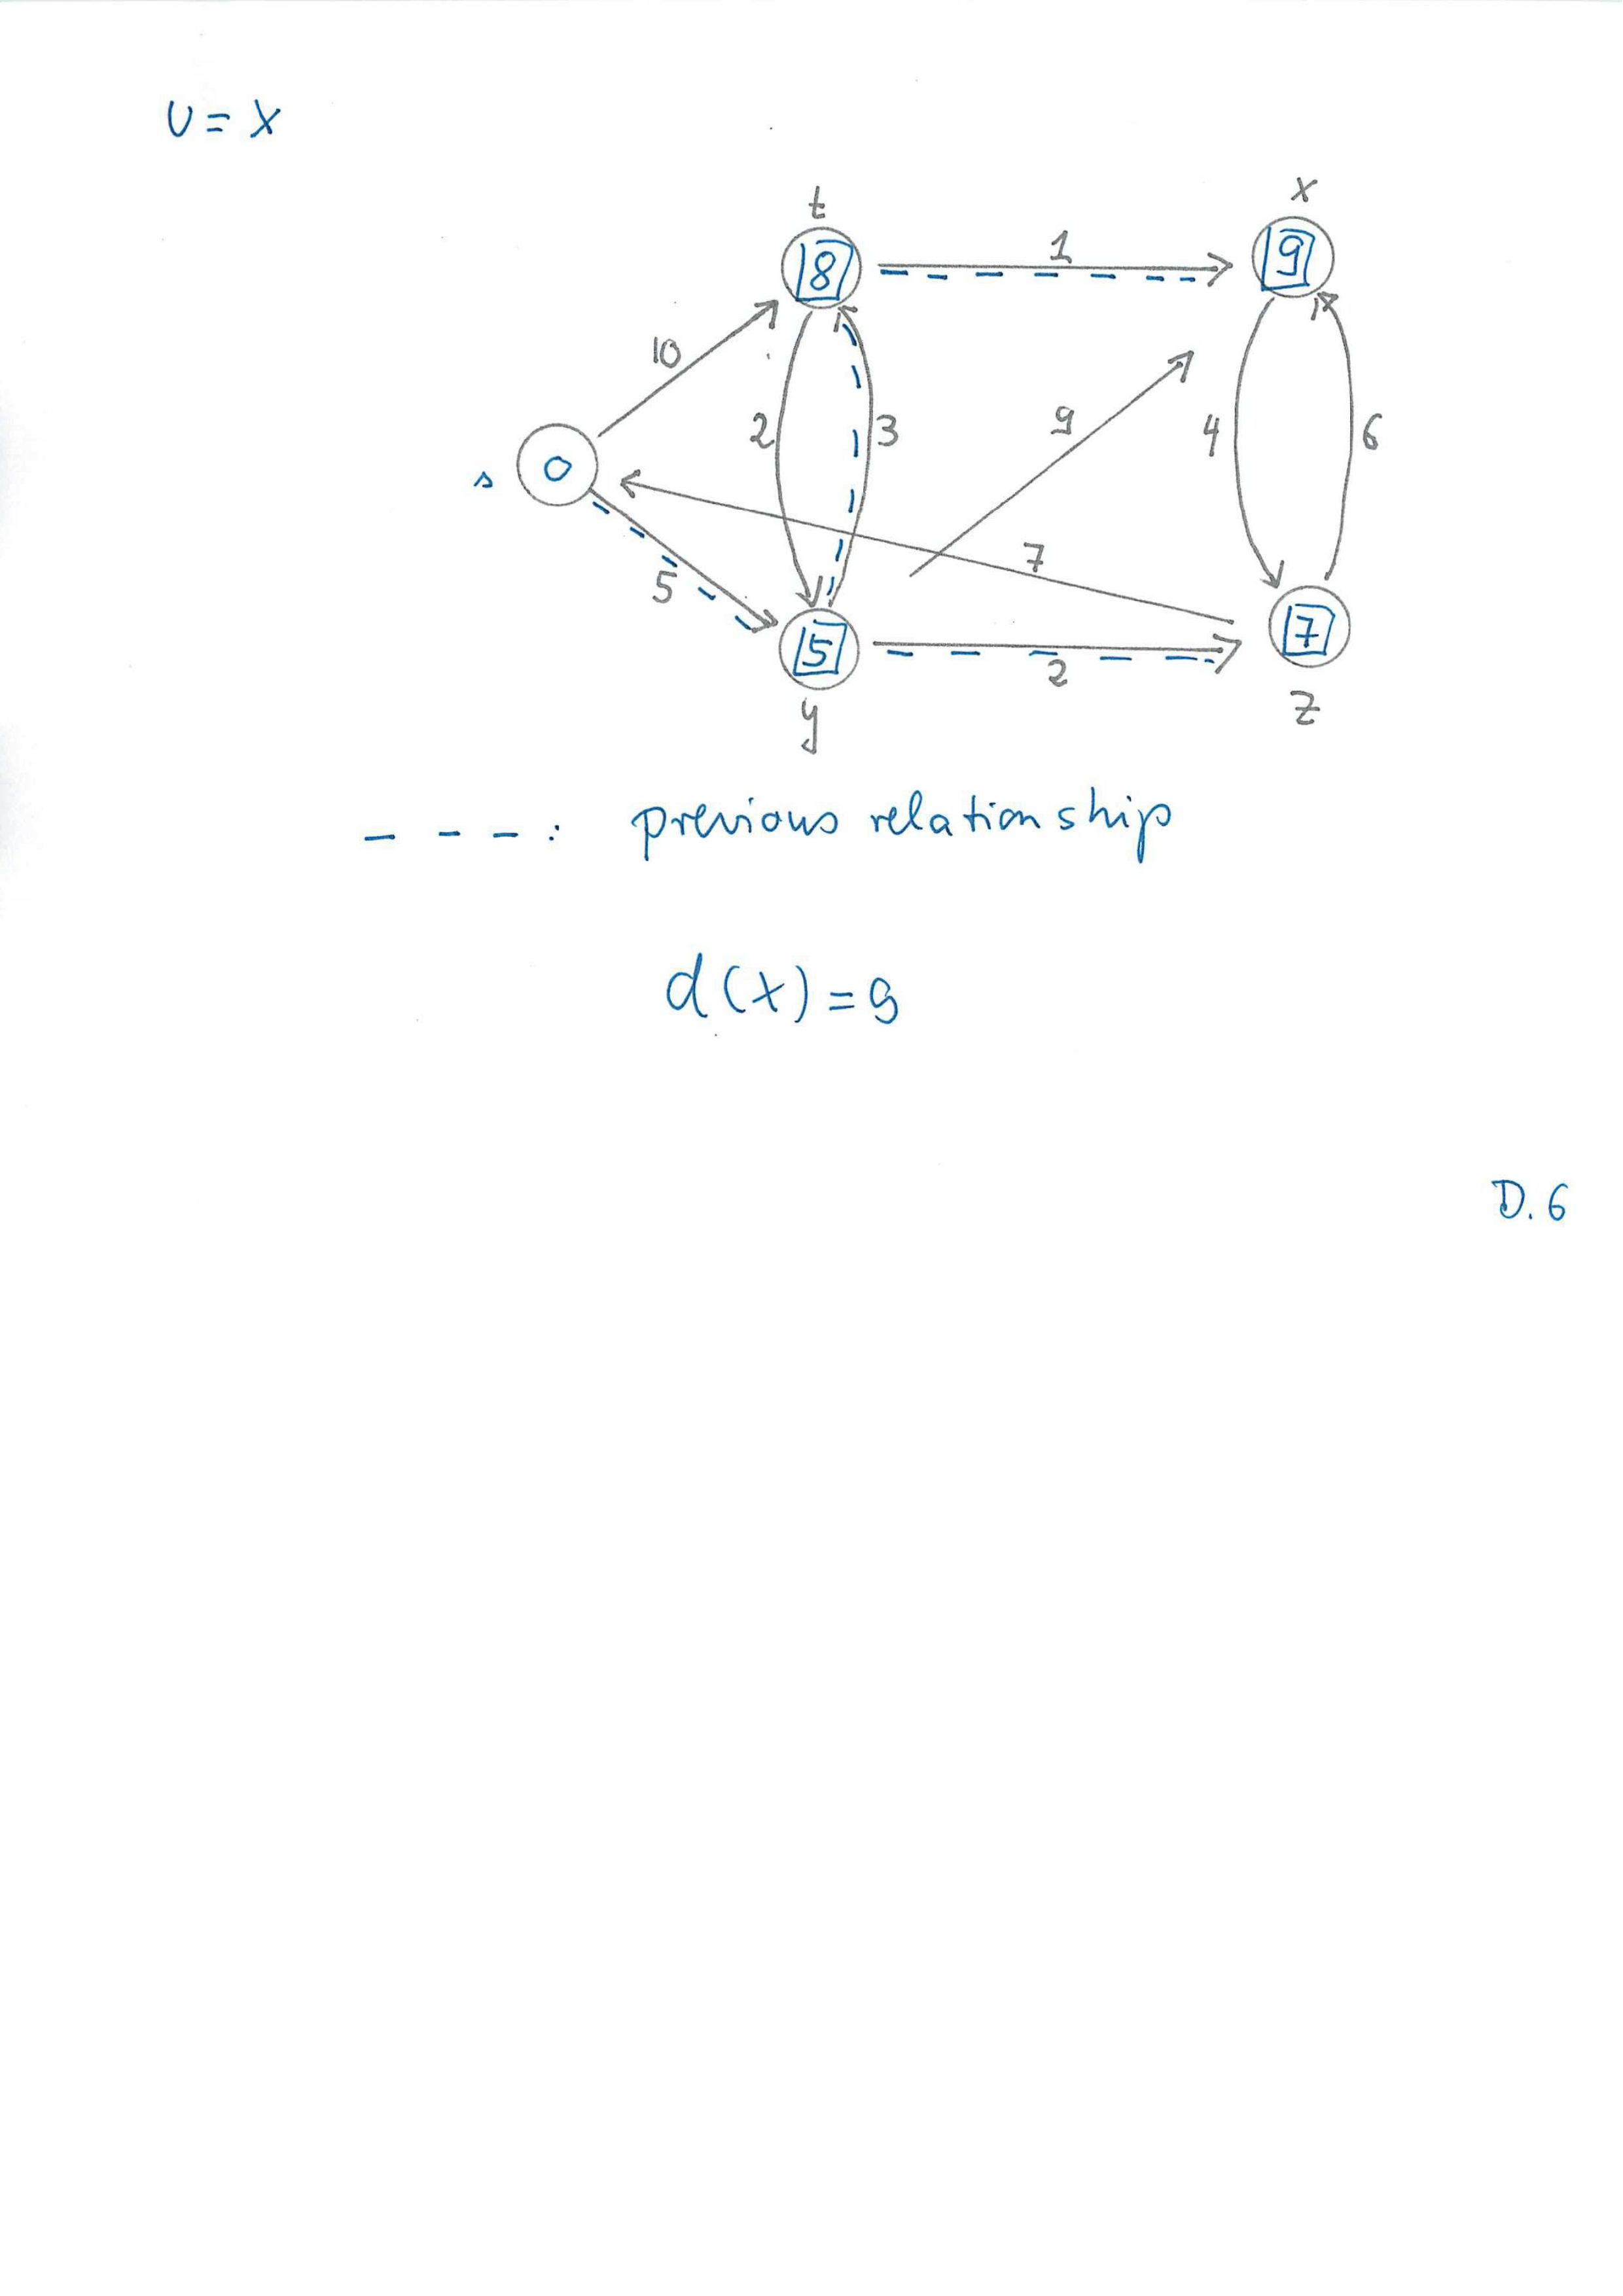 U = X
t x
8 1 9
10
2 3 9 4 6
s 0
5 7
5 2 7
y z
- - - : previous relationship
d(x) = 9
D. 6